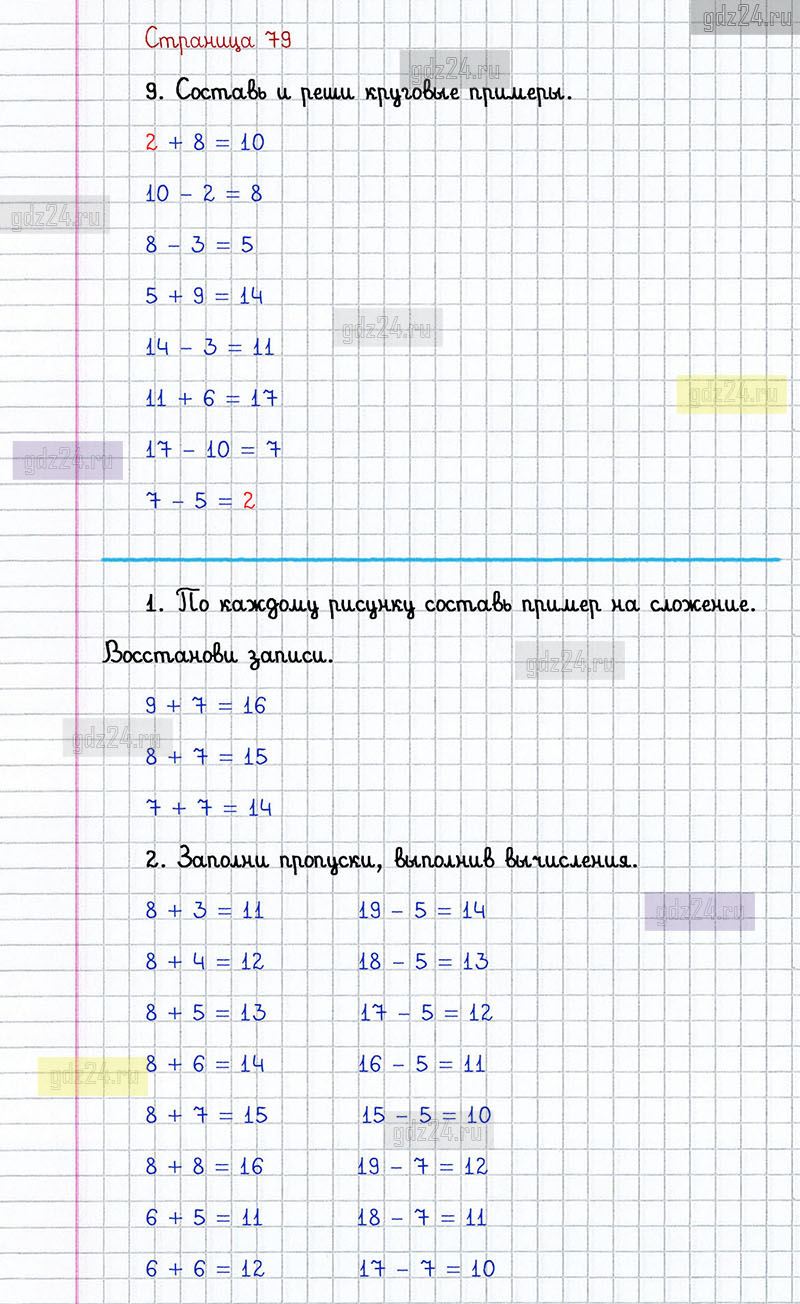 gdz24.ru
Страница 79
gdz24.ru
9. Составь и реши круговые примеры.
2 + 8 = 10
10 - 2 = 8
gdz24.ru
8 - 3 = 5
5 + 9 = 14
gdz24.ru
14 - 3 = 11
gdz24.ru
11 + 6 = 17
17 - 10 = 7
gdz24.ru
7 - 5 = 2
1. По каждому рисунку составь пример на сложение.
Восстанови записи.
gdz24.ru
9 + 7 = 16
gdz24.ru
8 + 7 = 15
7 + 7 = 14
2. Заполни пропуски, выполнив вычисления.
8 + 3 = 11 19 - 5 = 14
gdz24.ru
8 + 4 = 12 18 - 5 = 13
8 + 5 = 13 17 - 5 = 12
8 + 6 = 14 16 - 5 = 11
gdz24.ru
8 + 7 = 15 15 - 5 = 10
gdz24.ru
8 + 8 = 16 19 - 7 = 12
6 + 5 = 11 18 - 7 = 11
6 + 6 = 12 17 - 7 = 10